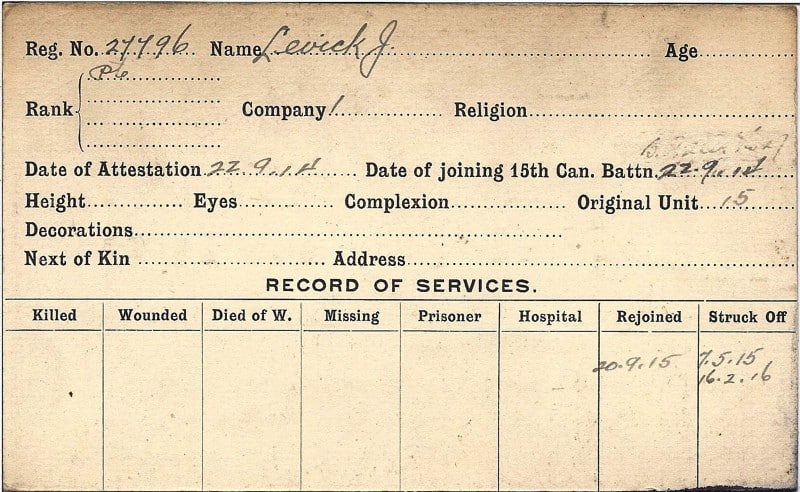 Reg. No. 27796 Name Levick J. Age
Pte
Rank Company 1 Religion
Date of Attestation 22.9.14 Date of joining 15th Can. Battn. 22.9.14
Height Eyes Complexion Original Unit 15
Decorations
Next of Kin Address
RECORD OF SERVICES.
Killed Wounded Died of W. Missing Prisoner Hospital Rejoined Struck Off
20.9.15 7.5.15
16.2.16